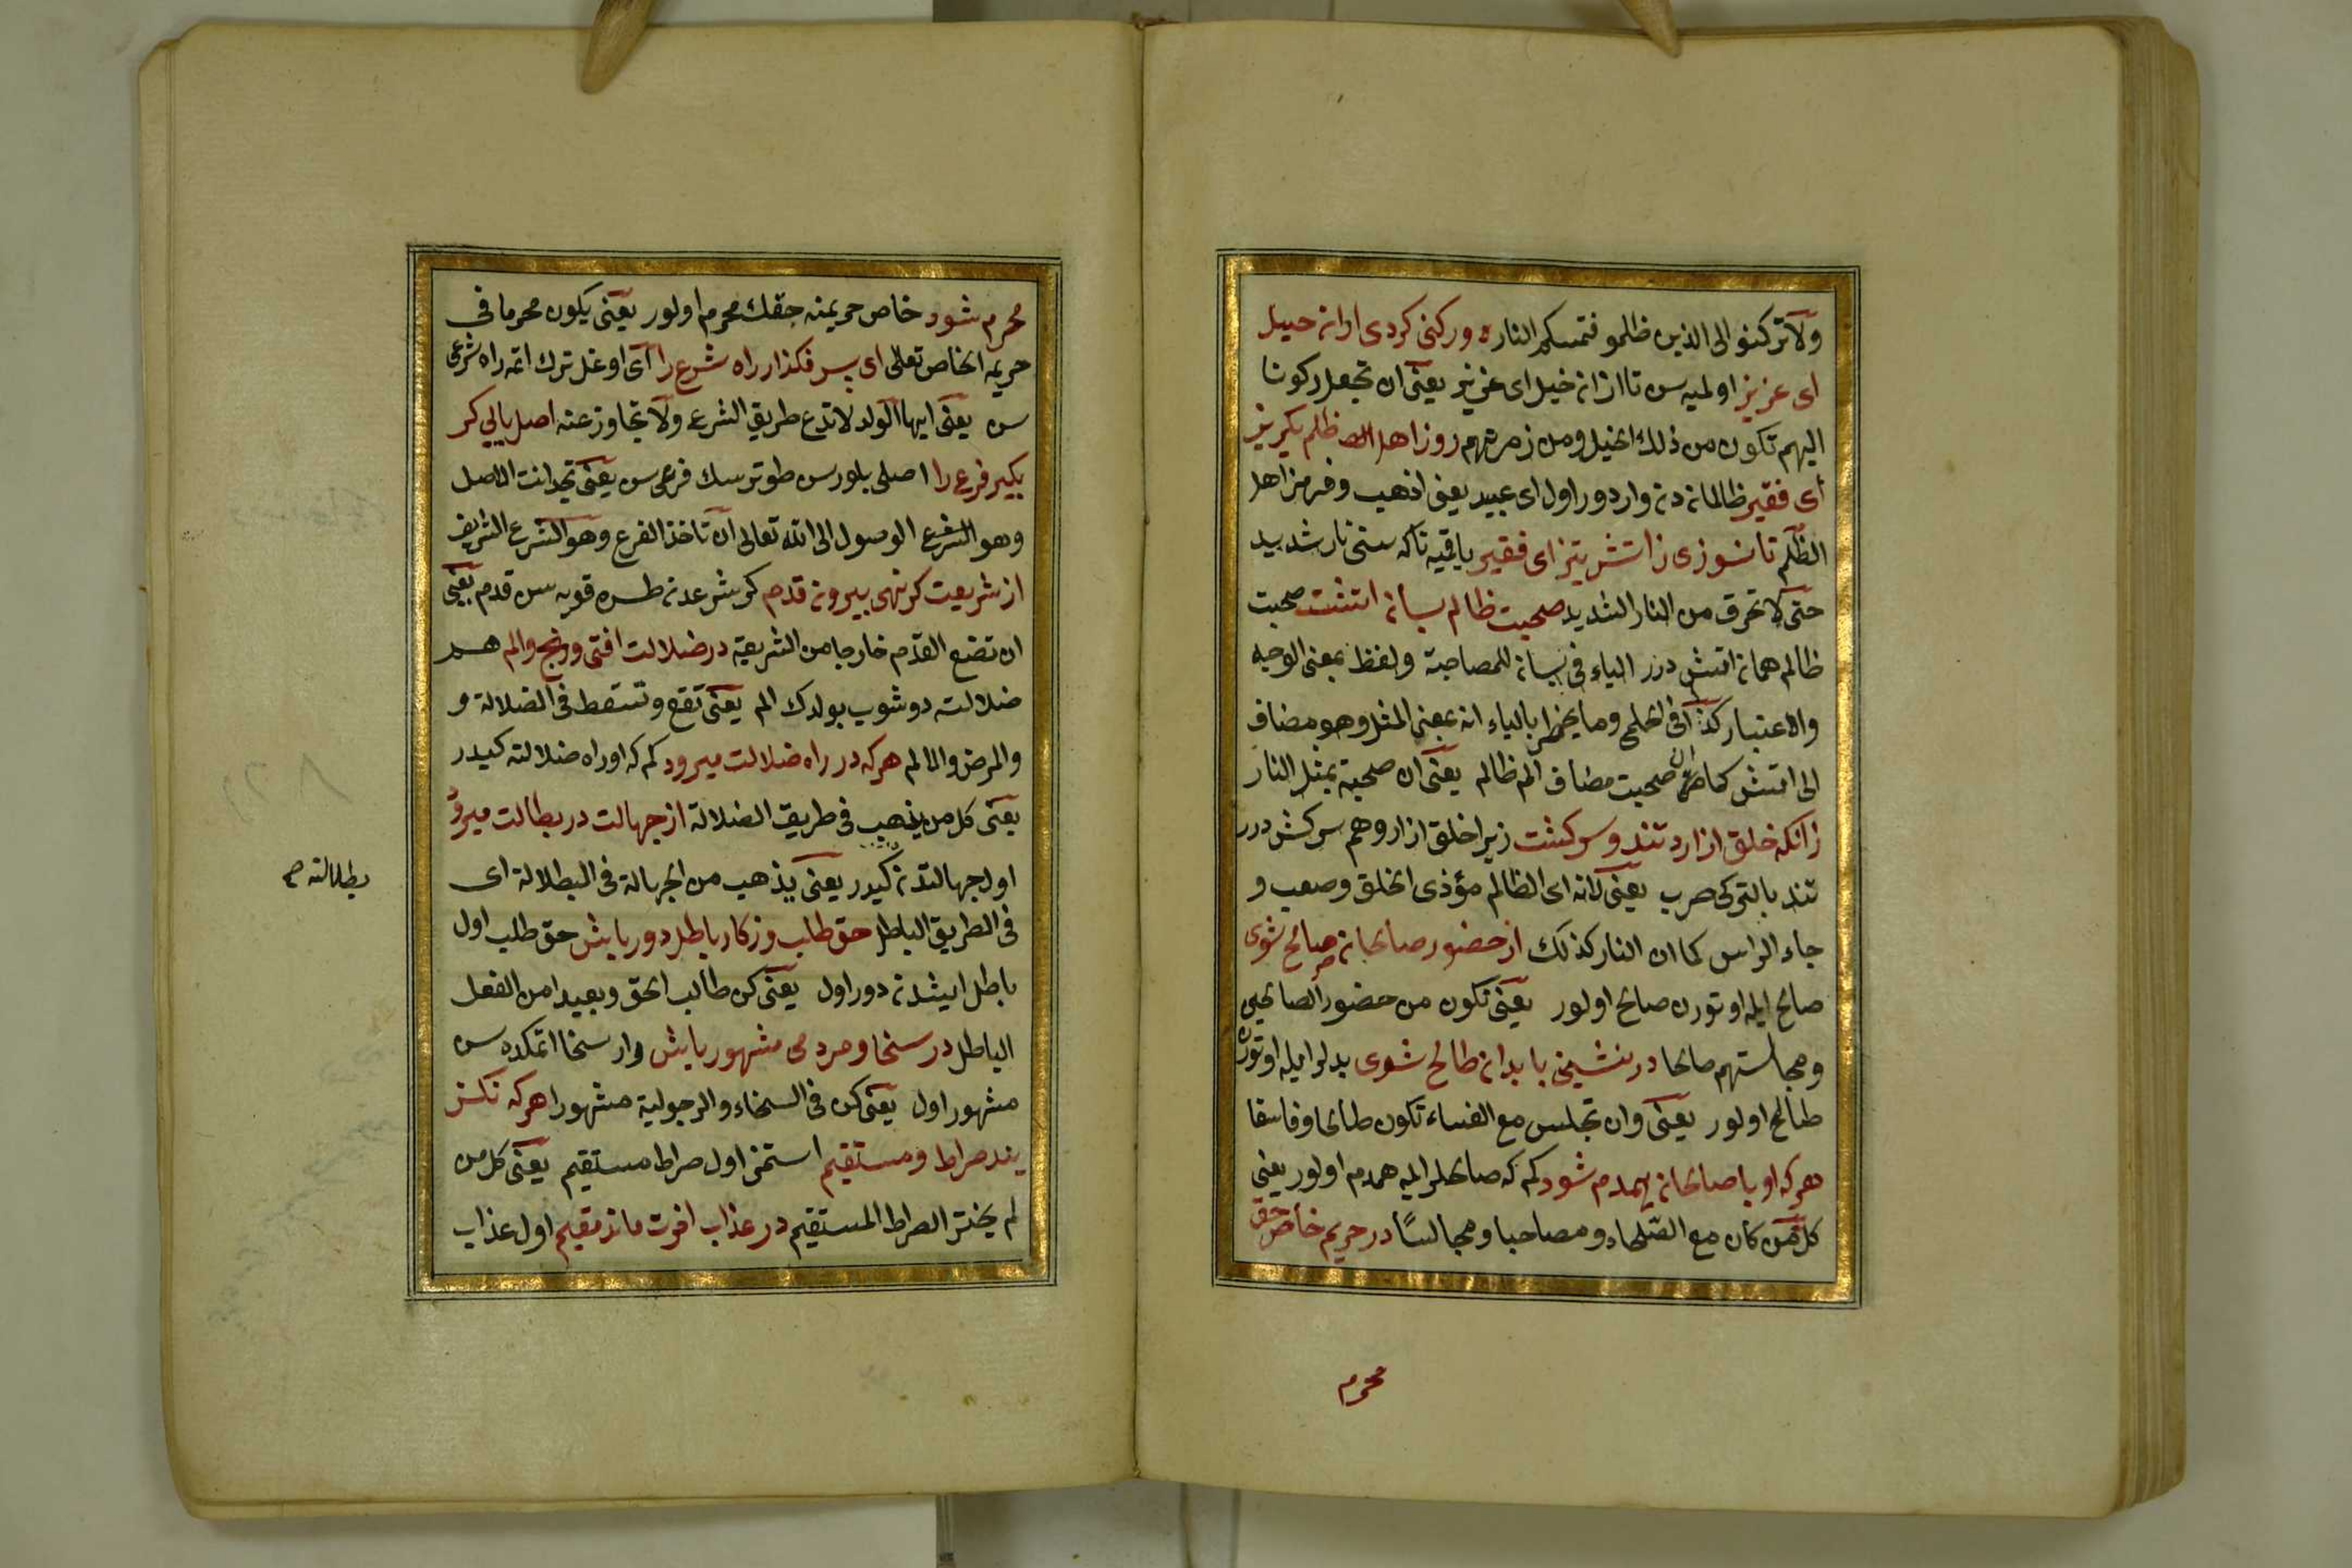 ولا تركنو الى الذين ظلمو فتمسكم النار ه ور كنى كردى ازان خيل
اى عزيز اولميه سن تا از ان خيل اى عزيز يعنى ان تجعل ركونا
اليهم تكون من ذلك الخيل ومن زمرتهم روز اهل ظلم بكريز
اى فقير ظالماندن وار دور اول اى عبيد يعنى اذهب وفر من اهل
الظلم تا نسوزى ز اتش تيز اى فقير ياقميه تا كه سنى نار شديد
حتى لا تحرق من النار الشديد صحبت ظالم بسان اتشت صحبت
ظالم همان اتش درر الباء فى بسان للمصاحبة ولفظ بمعنى الوجه
والاعتبار كذا فى الحلمى وما يخطر بالباء انه بمعنى المثل وهو مضاف
الى اتش كما ان صحبت مضاف الم ظالم يعنى ان صحبة بمثل النار
زانكه خلق ازارد تند وسركشت زيرا خلق ازار وهم سركش درر
تند بالتركى صرب يعنى لانه اى الظالم مؤذى الخلق وصعب و
جاء الراس كما ان النار كذلك از حضور صالحان صالح شوى
صالح ايله اوتورن صالح اولور يعنى تكون من حضور الصالحين
ومجالستهم صالحا در نشينى با بدان طالح شوى بدلر ايله اوتورن
طالح اولور يعنى وان تجلس مع الفساء تكون طالحا وفاسقا
هر كه او با صالحان همدم شود كم كه صالحلر ايله همدم اولور يعنى
كل من كان مع الصلحاء ومصاحبا ومجالسًا در حريم خاص حق
محرم
محرم شود خاص حريمنه حقك محرم اولور يعنى يكون محرما فى
حريمه الخاص تعالى اى پسر فكذار راه شرع را اى اوغل ترك اتمه راه شرعى
سن يعنى ايها الولد لا تدع طريق الشرع ولا تجاوز عنه اصل يابى كر
بكير فرع را اصلى بلورسن طوترسك فرعى سن يعنى تجد انت الاصل
وهو الشرع الوصول الى الله تعالى ان تاخذ الفرع وهو الشرع الشريف
از شريعت كر نهى بيرون قدم كر شرعدن طشره قويه سن قدم يعنى
ان تضع القدم خارجا من الشريعة در ضلالت افتى ورنج والم هم
ضلالته دوشوب بولدك الم يعنى تقع وتسقط فى الضلالة و
والمرض والالم هر كه در راه ضلالت ميرود كم كه اوراه ضلالته كيدر
يعنى كل من يذهب فى طريق الضلالة از جهالت در بطالت ميرود
اول جهالتدن كيدر يعنى يذهب من الجهالة فى البطلالة اى
بطلالته صح
فى الطريق الباطل حق طلب وز كار باطل دور باش حق طلب اول
باطل ايشدن دور اول يعنى كن طالب الحق وبعيدا من الفعل
الباطل در سخا ومردمى مشهور باش وار سخا اتمكده سن
مشهور اول يعنى كن فى السخاء والرجولية مشهورا هر كه نكز
يند صراط ومستقيم استمز اول صراط مستقيم يعنى كل من
لم يختر الصراط المستقيم در عذاب اخرت ماند مقيم اول عذاب